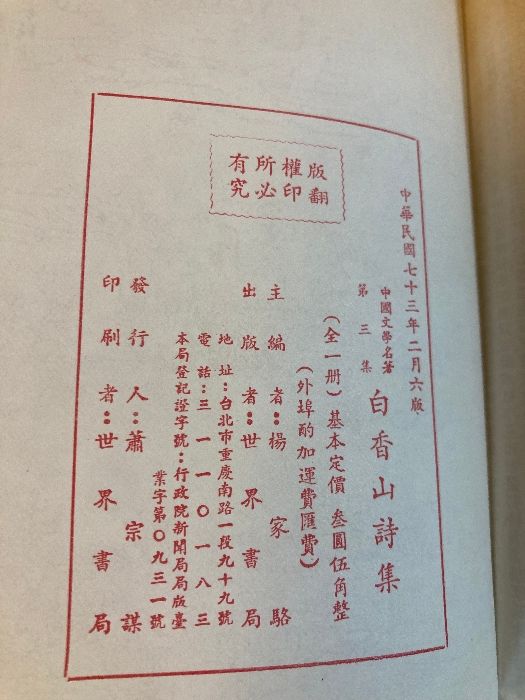 版權所有
翻印必究
中華民國七十三年二月六版
中國文學名著
第三集
白香山詩集
（全一册）基本定價 叁圓伍角整
（外埠酌加運費匯費）
主編者：楊家駱
出版者：世界書局
地址：台北市重慶南路一段九十九號
電話：三一一〇一八三
本局登記證字號：行政院新聞局局版臺
業字第〇九三一號
發行人：蕭宗謀
印刷者：世界書局